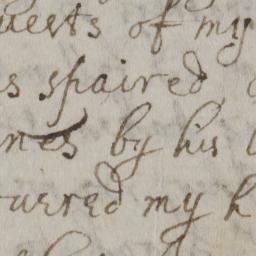 uests of my
s spaired
nes by his
uered my h